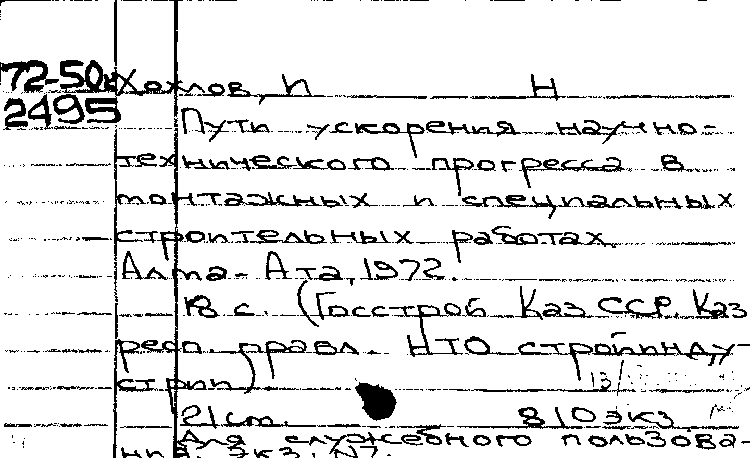 72-50к Хохлов, П Н
2495
Пути ускорения научно-
технического прогресса в
монтажных и специальных
строительных работах.
Алма-Ата, 1972.
18 с. (Госстрой Каз ССР. Каз
респ. правл. НТО стройинду-
стрии)
21 cm. 810 экз
Для служебного пользова-
ния. Экз. N7.